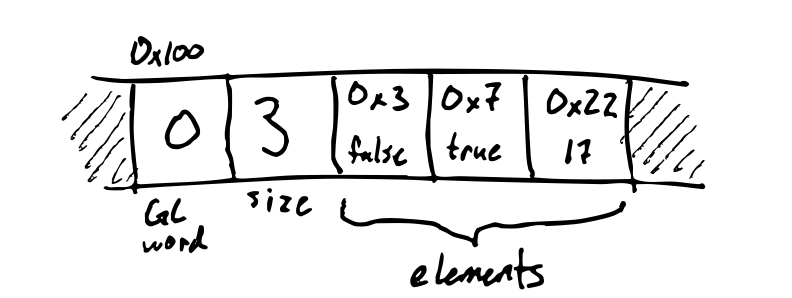 0x100
0
3
0x3
false
0x7
true
0x22
17
GC
word
size
elements